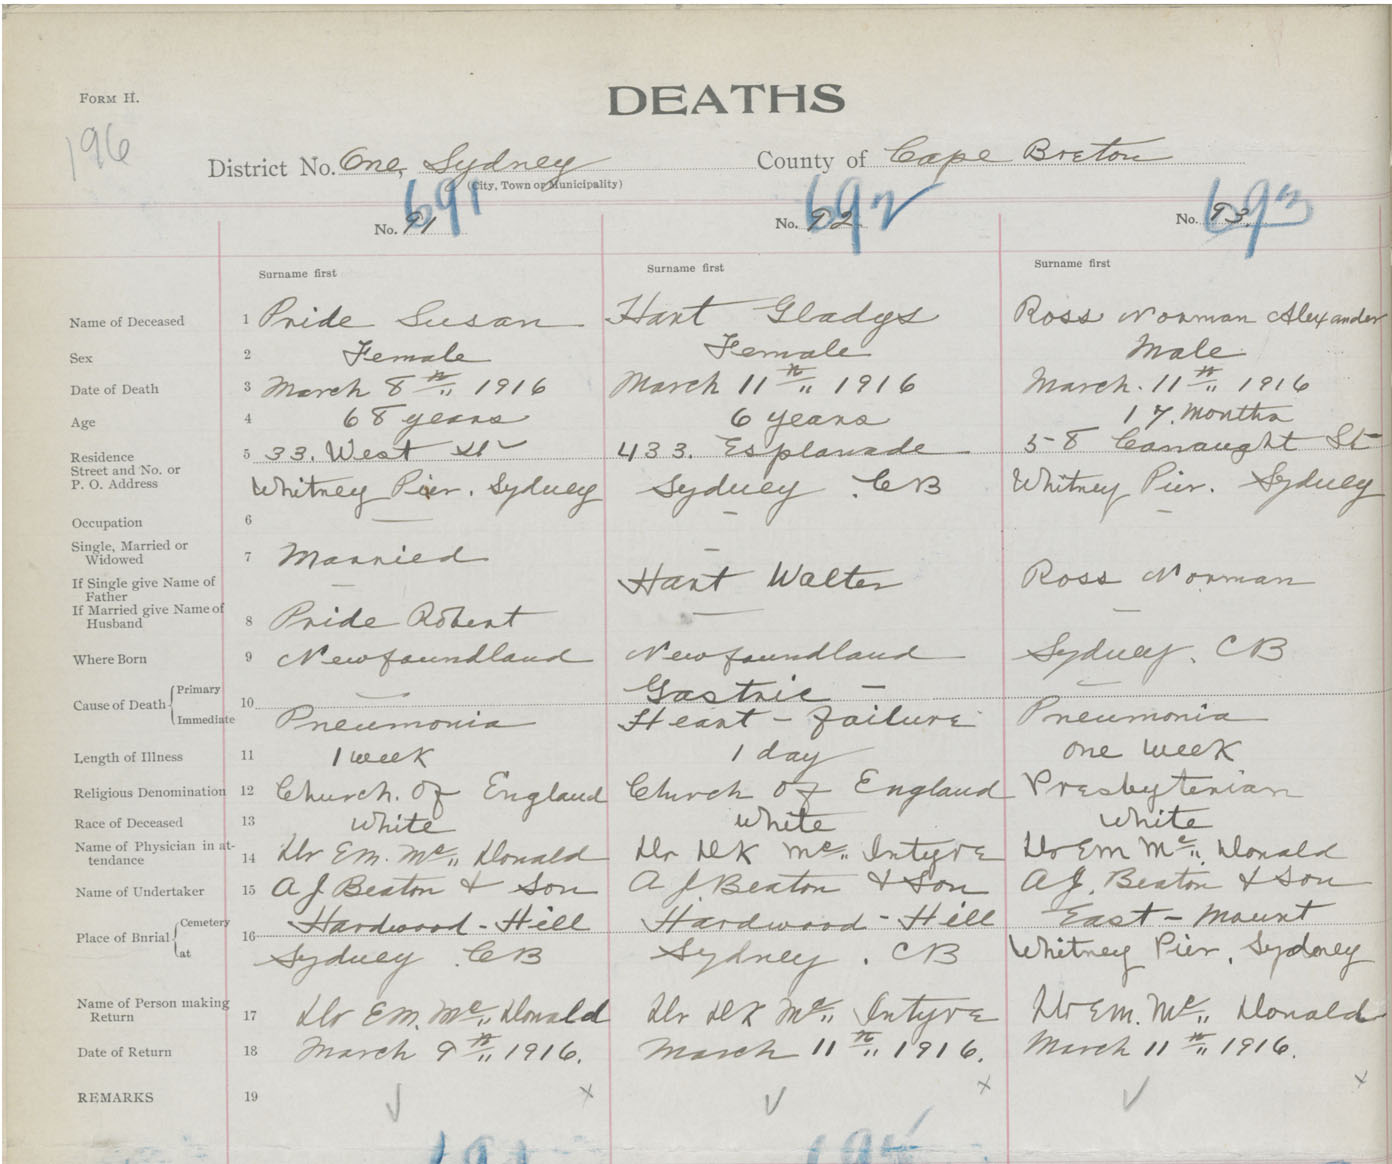 FORM H.
DEATHS
196
District No. One, Sydney County of Cape Breton
(City, Town or Municipality)
691 692 693
No. 91 No. 92 No. 93.
Surname first Surname first Surname first
Name of Deceased 1 Pride Susan Hart Gladys Ross Norman Alexander
Sex 2 Female Female Male
Date of Death 3 March 8th 1916 March 11th 1916 March. 11th 1916
Age 4 68 years 6 years 17. months
Residence 5 33. West St 433. Esplanade 58 Connaught St
Street and No. or
P. O. Address Whitney Pier. Sydney Sydney . CB Whitney Pier. Sydney
Occupation 6 — —
Single, Married or
Widowed 7 Married —
If Single give Name of
Father — Hart Walter Ross Norman
If Married give Name of
Husband 8 Pride Robert — —
Where Born 9 Newfoundland Newfoundland Sydney. CB
Cause of Death Primary 10 — Gastric — —
Immediate Pneumonia Heart - failure Pneumonia
Length of Illness 11 1 week 1 day one week
Religious Denomination 12 Church. Of England Church Of England Presbyterian
Race of Deceased 13 White White White
Name of Physician in at-
tendance 14 Dr EM. Mc Donald Dr DK Mc Intyre Dr EM Mc Donald
Name of Undertaker 15 A J Beaton & Son A J Beaton & Son A J. Beaton & Son
Place of Bnrial Cemetery 16 Hardwood - Hill Hardwood - Hill East - Mount
at Sydney . CB Sydney . CB Whitney Pier, Sydney
Name of Person making
Return 17 Dr EM. Mc Donald Dr DK Mc Intyre Dr EM. Mc Donald
Date of Return 18 March 9th 1916. March 11th 1916. March 11th 1916.
REMARKS 19